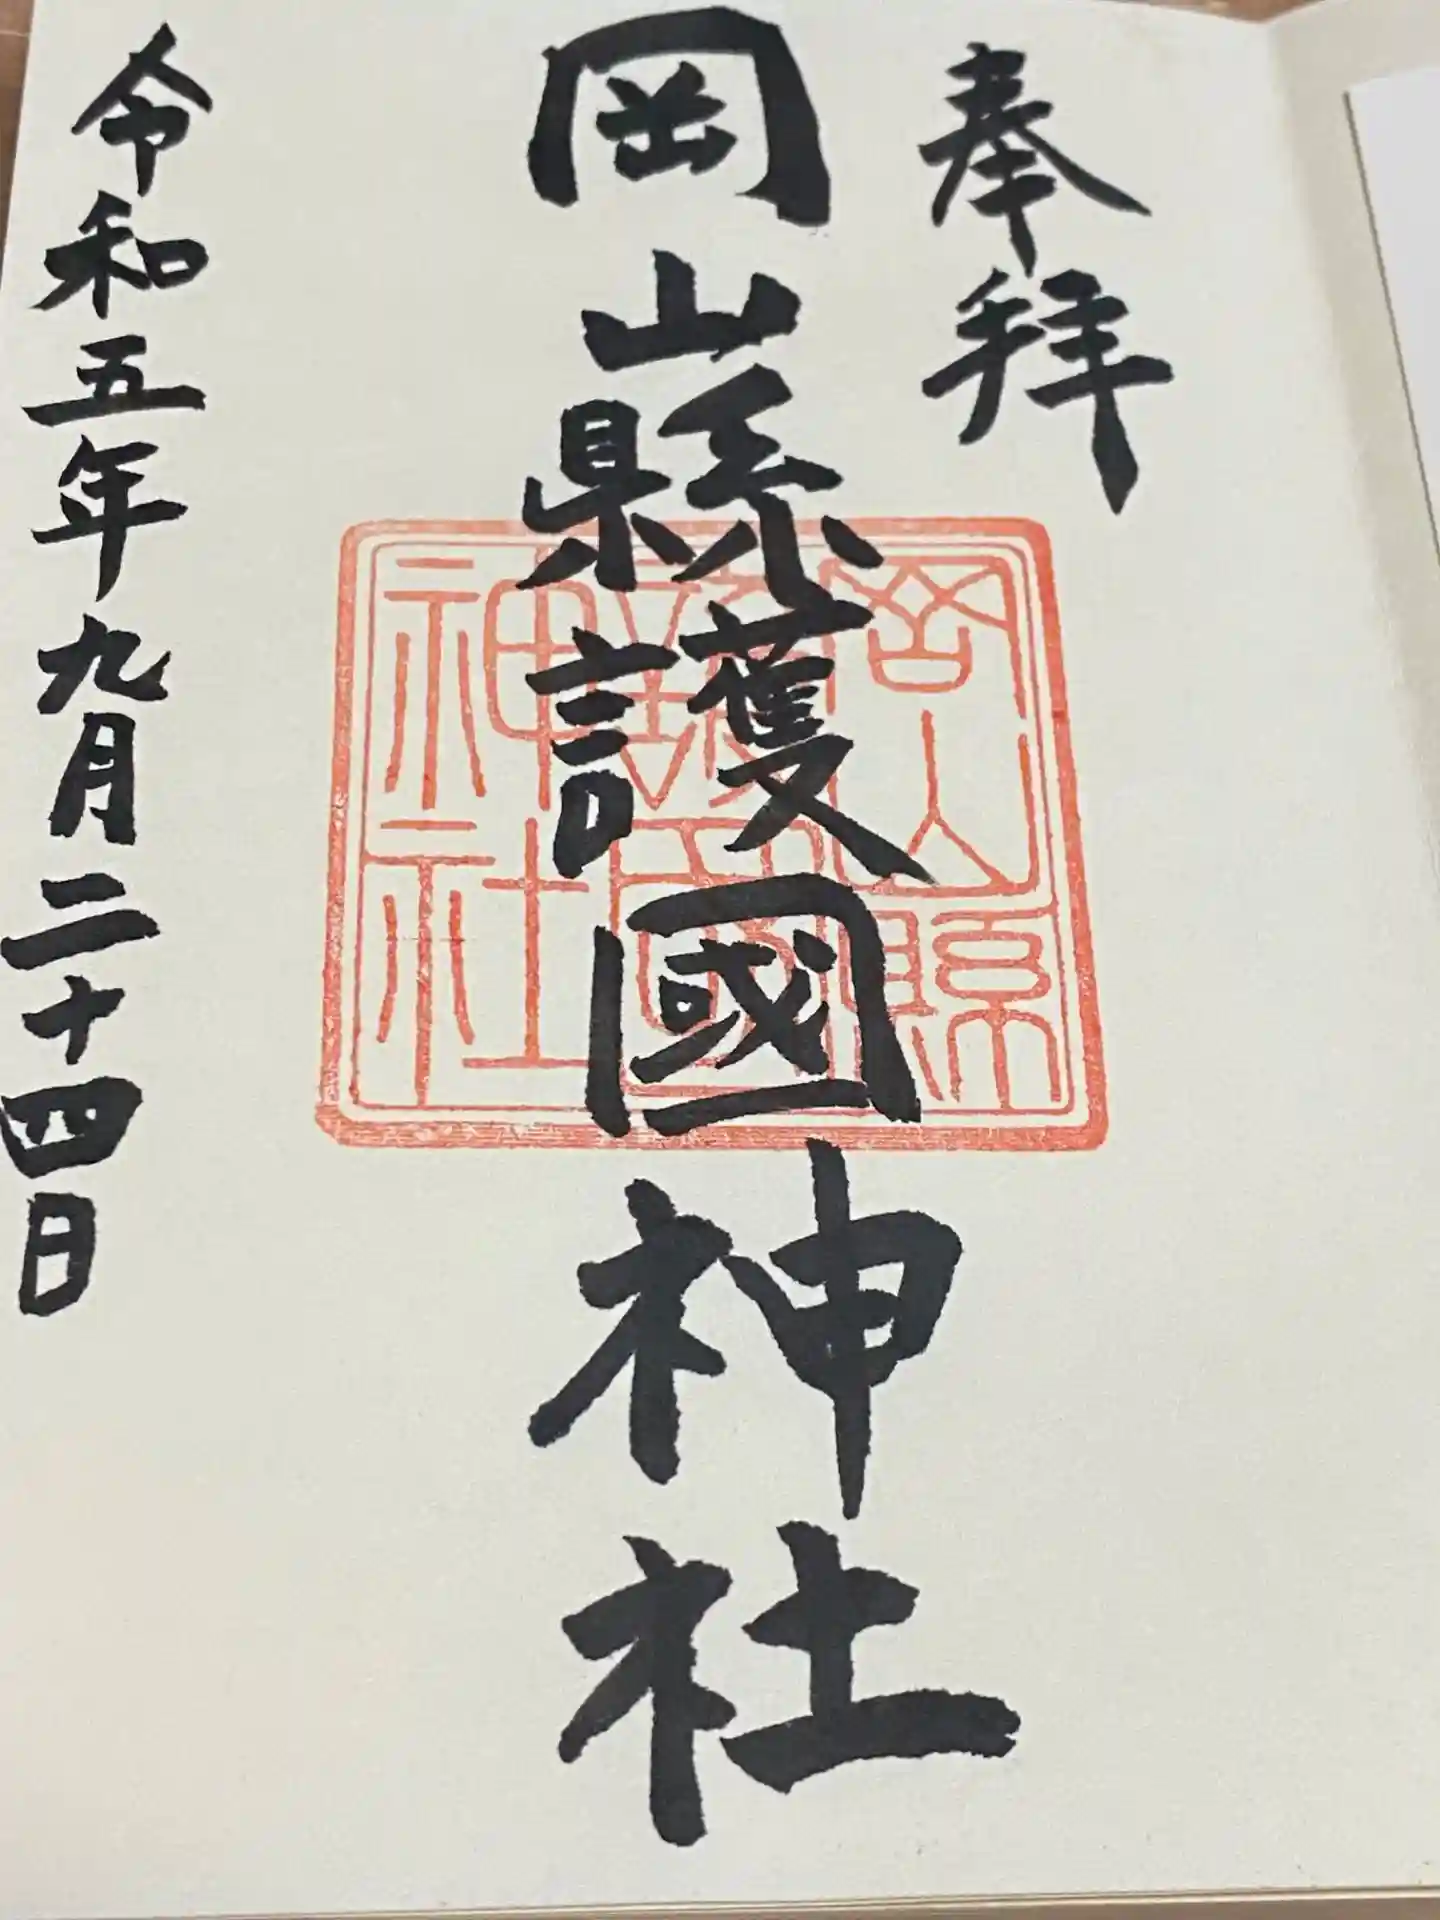 奉拝
岡山縣護國神社
岡山縣
護國
神社
令和五年九月二十四日